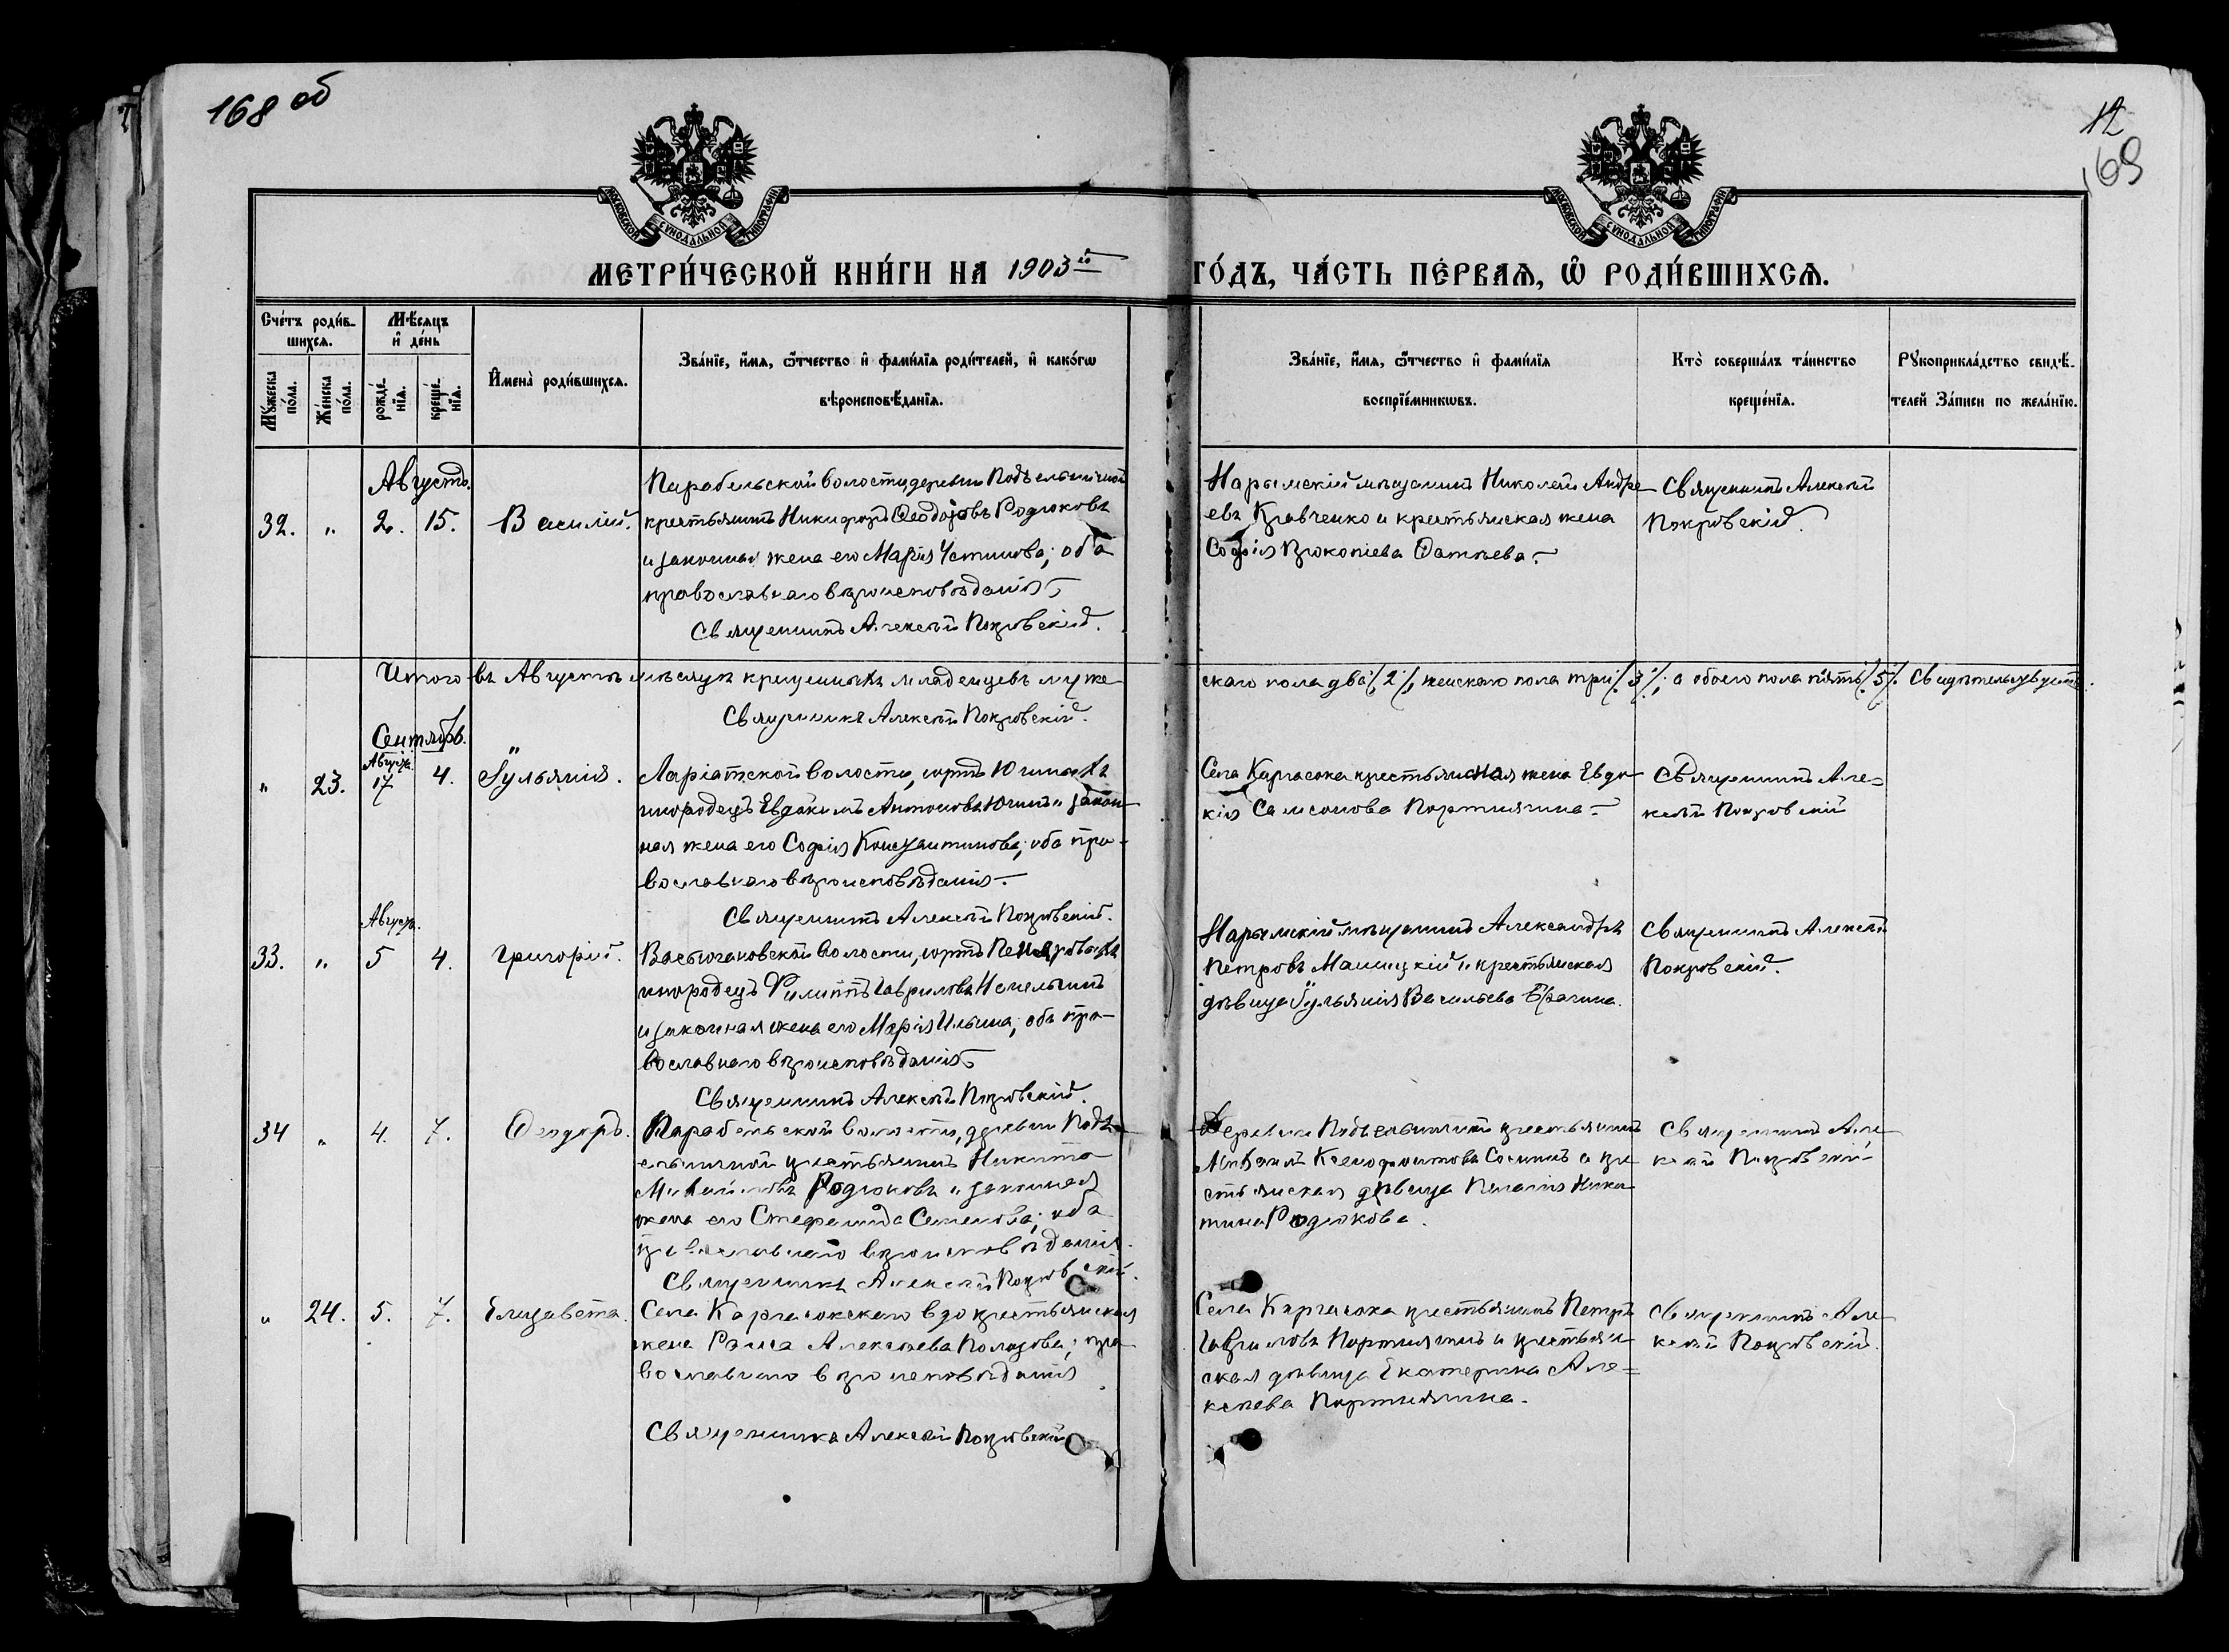 168 об
12
169
МОСКОВСКОЙ СѴНОДАЛЬНОЙ ТИПОГРАФІИ
МОСКОВСКОЙ СѴНОДАЛЬНОЙ ТИПОГРАФІИ
МЕТРИ́ЧЕСКОЙ КНИ́ГИ НА 1903й ГО́ДЪ, ЧА́СТЬ ПЕ́РВАѦ, Ѡ РОДИ́ВШИХСѦ.
Сче́тъ роди́в-
шихсѧ.
Мꙋ́жеска по́ла.
Же́нска по́ла.
Мѣ́сѧцъ
и҆ де́нь
рожде́-
нїѧ.
креще́-
нїѧ.
И҆мена̀ роди́вшихсѧ.
Зва́нїе, и҆́мѧ, ѻ҆́тчество и҆ фами́лїѧ роди́телей, и҆ како́гѡ
вѣроисповѣ́данїѧ.
Зва́нїе, и҆́мѧ, ѻ҆́тчество и҆ фами́лїѧ
воспрїе́мникѡвъ.
Кто̀ соверша́лъ та́инство
креще́нїѧ.
Рꙋкоприкла́дство свидѣ́-
телей За́писи по жела́нїю.
Августъ.
32. " 2. 15. Василій.
Парабельской волости, деревни Подъельничной
крестьянинъ Никифоръ Ѳеодоровъ Родюковъ
и законная жена его Марія Устинова; оба
православнаго вѣроисповѣданія.
Священникъ Алексѣй Покровскій.
Нарымскій мѣщанинъ Николай Андре-
евъ Кравченко и крестьянская жена
Софія Прокопіева Фатѣева.
Священникъ Алексѣй
Покровскій.
Итого въ Августѣ мѣсяцѣ крещенныхъ младенцевъ муже-
скаго пола два /2/, женскаго пола три /3/, а обоего пола пять /5/. Свидѣтельствуетъ
Священникъ Алексѣй Покровскій.
Сентябрь.
Августа.
" 23. 17 4. Іульянія.
Ларіатской волости, юртъ Югиныхъ
инородецъ Евдокимъ Антоновъ Югинъ и закон-
ная жена его Софія Константинова; оба пра-
вославнаго вѣроисповѣданія.
Священникъ Алексѣй Покровскій.
Села Каргасока крестьянская жена Евдо-
кія Самсонова Портнягина.
Священникъ Але-
ксѣй Покровскій
Августа.
33. " 5 4. Григорій.
Васюгановской волости, юртъ
инородецъ Филиппъ Гавриловъ
и законная жена его Марія Ильина; оба пра-
вославнаго вѣроисповѣданія.
Священникъ Алексѣй Покровскій.
Нарымскій мѣщанинъ Александръ
Петровъ Маницкій и крестьянская
дѣвица Іульянія Васильева Брагина.
Священникъ Алексѣй
Покровскій.
34 " 4. 7. Ѳеодоръ.
Парабельской волости, деревни Подъ-
ельничной крестьянинъ Никита
Михайловъ Родюковъ и законная
жена его Стефанида Семенова; оба
православнаго вѣроисповѣданія.
Священникъ Алексѣй Покровскій.
Деревни Подъельничной крестьянинъ
Михаилъ Ксенофонтовъ Сосинъ и кре-
стьянская дѣвица Пелагія Ники-
тина Родюкова.
Священникъ Але-
ксѣй Покровскій
" 24. 5. 7. Елизавета.
Села Каргасокскаго вдо крестьянская
жена Раиса Алексѣева Полозова; пра-
вославнаго вѣроисповѣданія
Священникъ Алексѣй Покровскій
Села Каргасока крестьянинъ Петръ
Гавриловъ Портнягинъ и крестьян-
ская дѣвица Екатерина Але-
ксѣева Портнягина.
Священникъ Але-
ксѣй Покровскій.